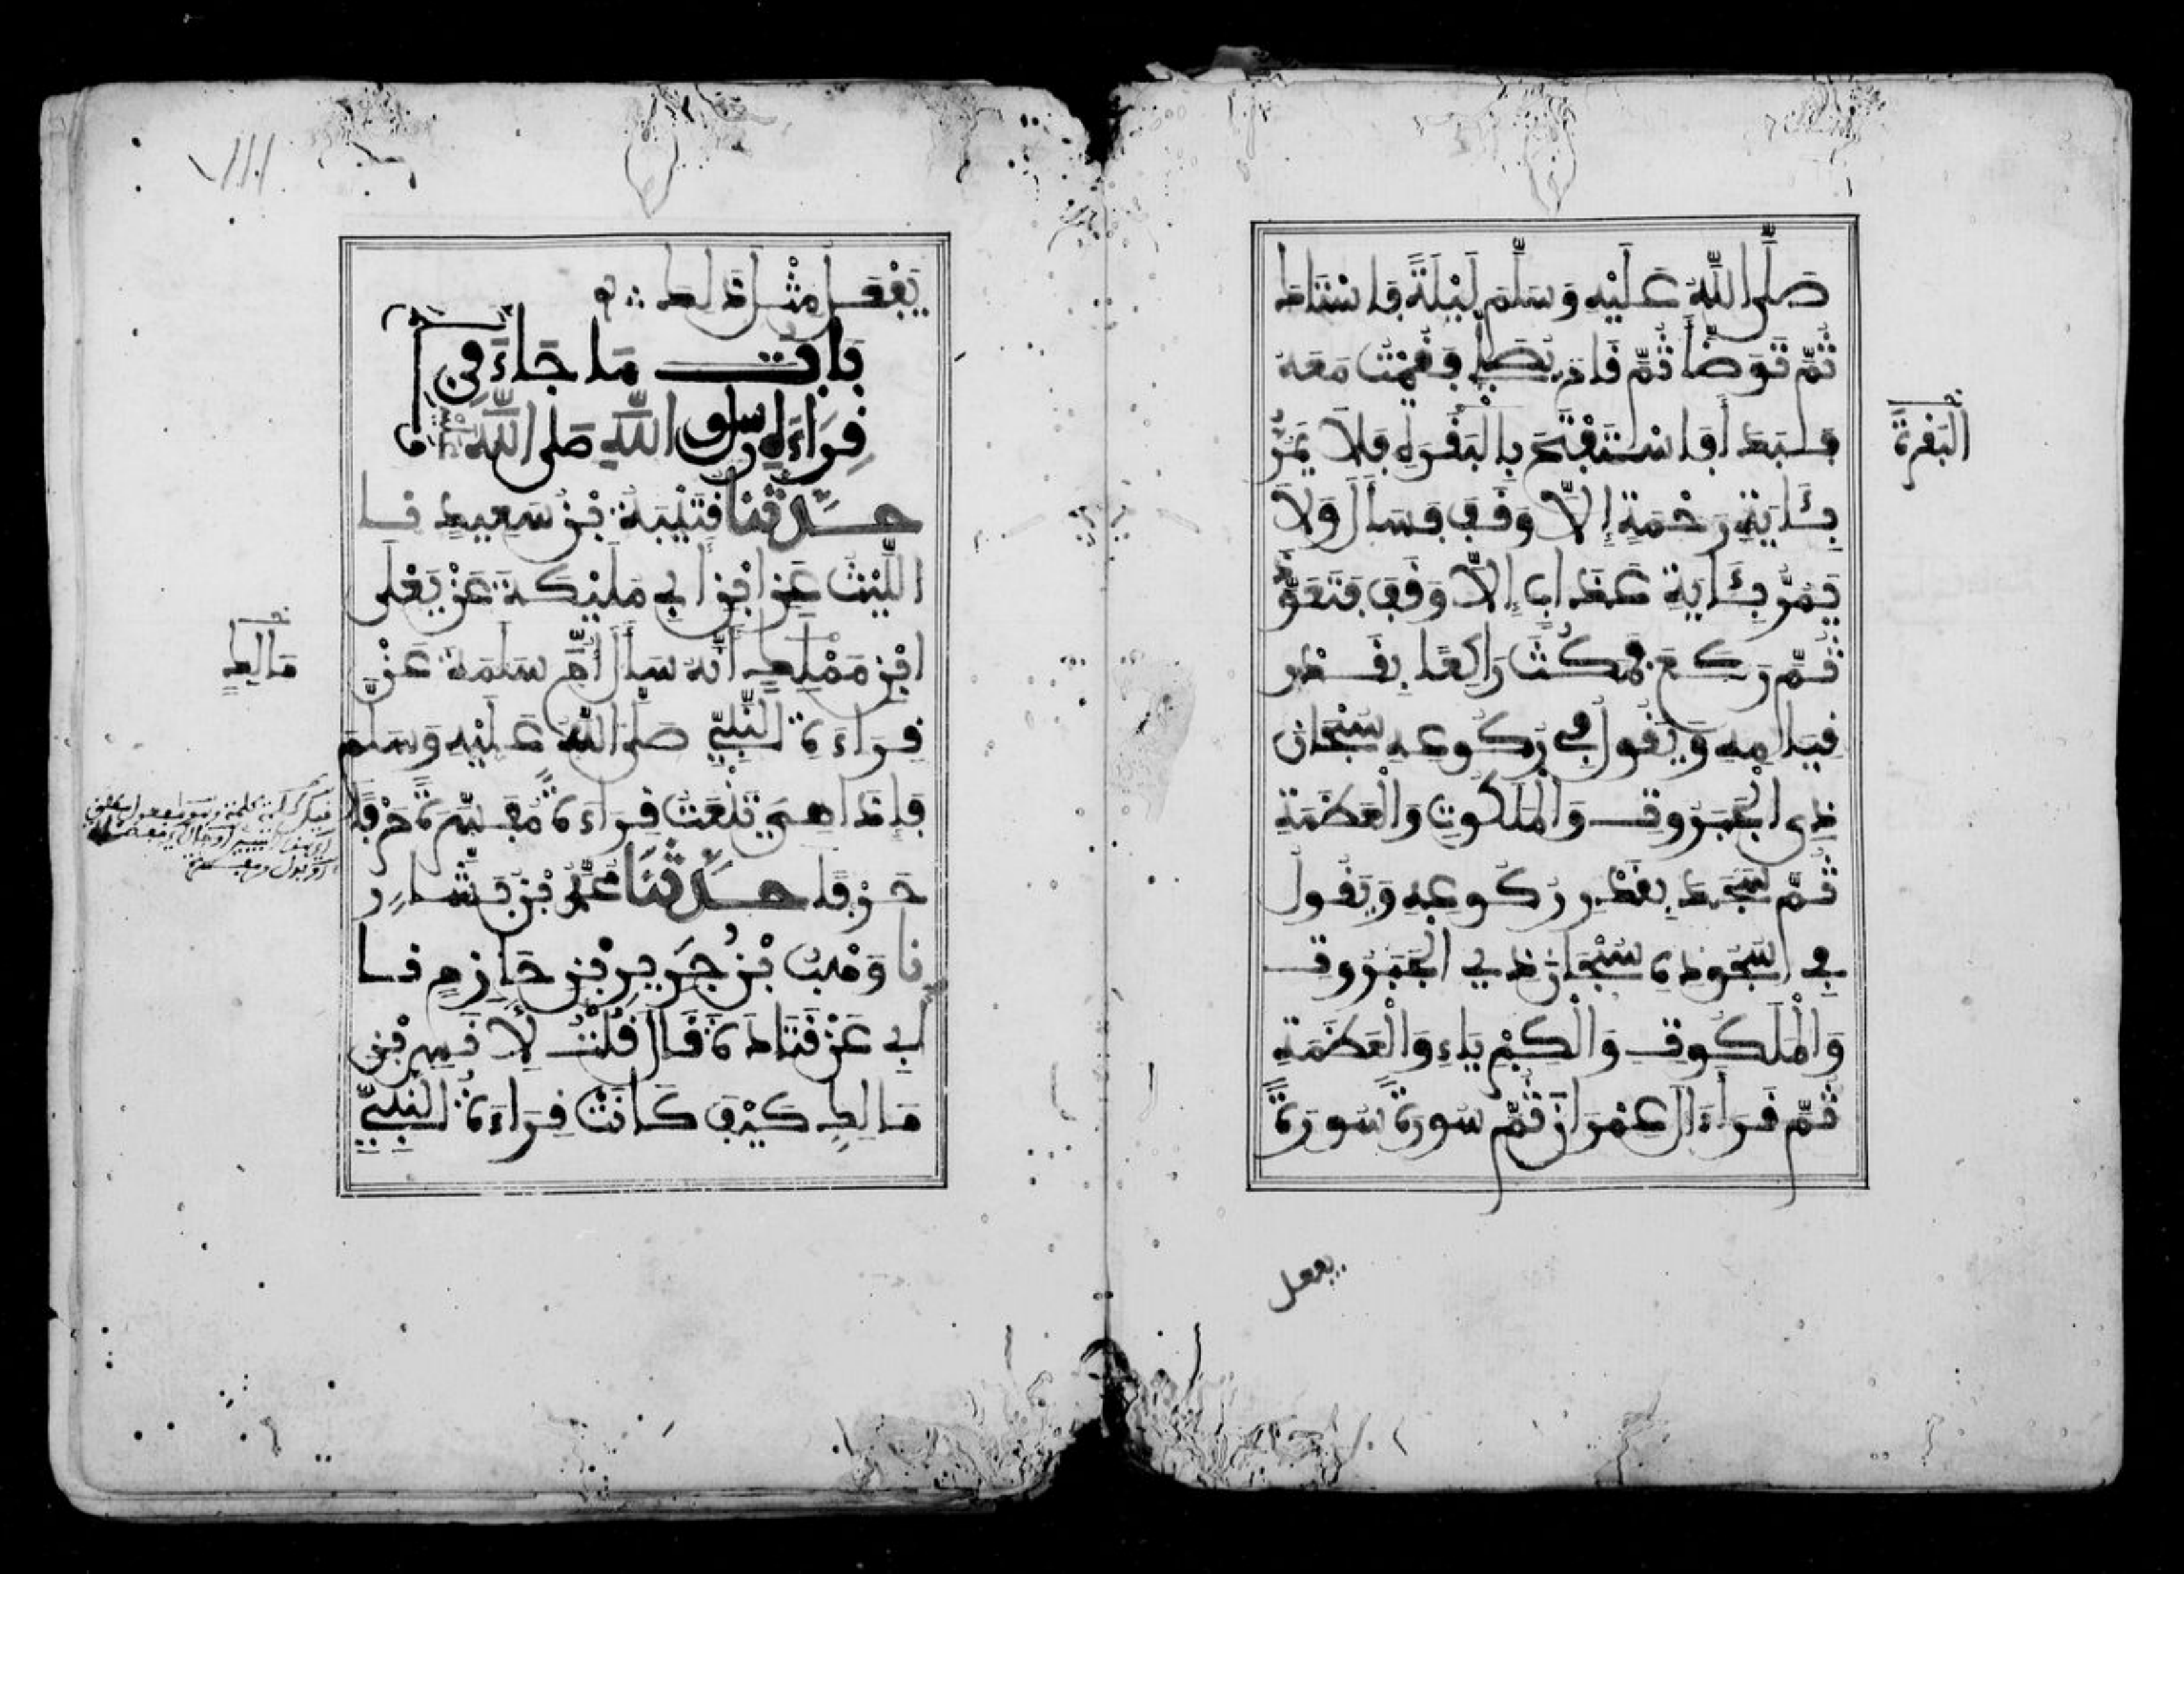 صَلَّى اللَّهُ عَلَيْهِ وَسَلَّمَ لَيْلَةً فَاسْتَاكَ
ثُمَّ تَوَضَّأَ ثُمَّ قَامَ يُصَلِّي فَقُمْتُ مَعَهُ
فَبَدَأَ فَاسْتَفْتَحَ بِالْبَقَرَةِ فَلَا يَمُرُّ
البَقَرَة
بِـَٔايَةِ رَحْمَةٍ إِلَّا وَقَفَ فَسَأَلَ وَلَا
يَمُرُّ بِـَٔايَةِ عَذَابٍ إِلَّا وَقَفَ فَتَعَوَّذَ
ثُمَّ رَكَعَ فَمَكُثَ رَاكِعًا بِقَدْرِ
قِيَامِهِ وَيَقُولُ فِي رُكُوعِهِ سُبْحَانَ
ذِي الْجَبَرُوتِ وَالْمَلَكُوتِ وَالْعَظَمَةِ
ثُمَّ سَجَدَ بِقَدْرِ رُكُوعِهِ وَيَقُولُ
فِي سُجُودِهِ سُبْحَانَ ذِي الْجَبَرُوتِ
وَالْمَلَكُوتِ وَالْكِبْرِيَاءِ وَالْعَظَمَةِ
ثُمَّ قَرَأَ ءَالَ عِمْرَانَ ثُمَّ سُورَةً سُورَةً
يفعل
يَفْعَلُ مِثْلَ ذَلِكَ
بَابُ مَا جَاءَ فِي
قِرَاءَةِ رَسُولِ اللَّهِ صَلَّى اللَّهُ
حَدَّثَنَا قُتَيْبَةُ بْنُ سَعِيدٍ نَا
اللَّيْثُ عَنِ ابْنِ أَبِي مُلَيْكَةَ عَنْ يَعْلَى
ابْنِ مَمْلَكٍ أَنَّهُ سَأَلَ أُمَّ سَلَمَةَ عَنْ
مَالِكٍ
قِرَاءَةِ النَّبِيِّ صَلَّى اللَّهُ عَلَيْهِ وَسَلَّمَ
فَإِذَا هِيَ تَنْعَتُ قِرَاءَةً مُفَسَّرَةً حَرْفًا
حَرْفًا حَدَّثَنَا مُحَمَّدُ بْنُ بَشَّارٍ
نَا وَهْبُ بْنُ جَرِيرِ بْنِ حَازِمٍ نَا
أَبِي عَنْ قَتَادَةَ قَالَ قُلْتُ لِأَنَسِ بْنِ
مَالِكٍ كَيْفَ كَانَتْ قِرَاءَةُ النَّبِيِّ